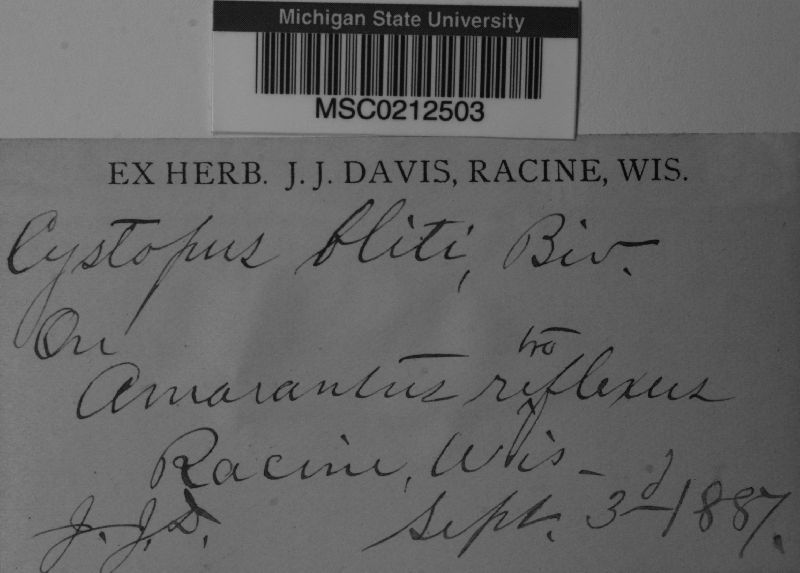 Michigan State University
MSC0212503
EX HERB. J. J. DAVIS, RACINE, WIS.
Cystopus bliti, Biv.
On
Amarantus retroflexus
Racine, Wis-
J.J.D. Sept. 3d-1887.